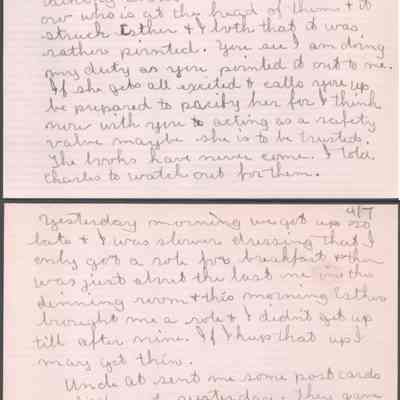 our who is at the head of them & it
struck Esther & I both that it was
rather pointed. You see I am doing
my duty as you pointed it out to me.
If she gets all excited & calls you up
be prepared to pacify her for I think
now with you to acting as a safety
valve maybe she is to be trusted.
The books have never come. I told
Charles to watch out for them.
9/7
Yesterday morning we got up so
late & I was slower dressing that I
only got a role for breakfast & then
was just about the last one in the
dinning room & this morning Esther
brought me a role & I didn't get up
till after nine. If I keep that up I
may get thin.
Uncle At sent me some postcards
yesterday. They gave